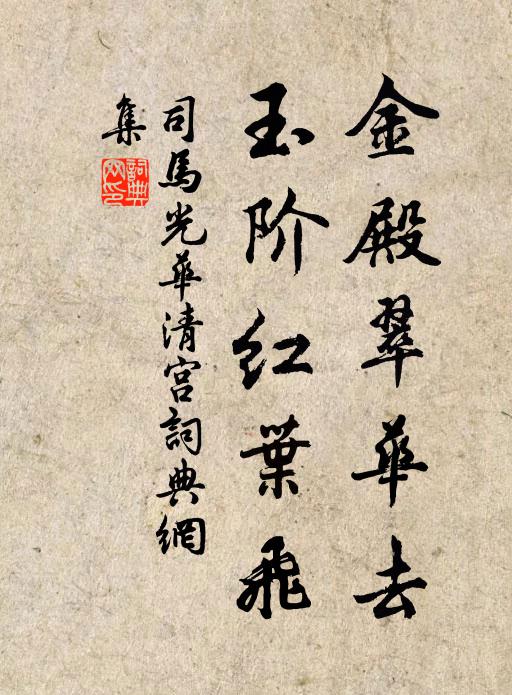 金殿翠華去
玉阶红葉飛
司馬光華清宮詞典網
集
詞典網印